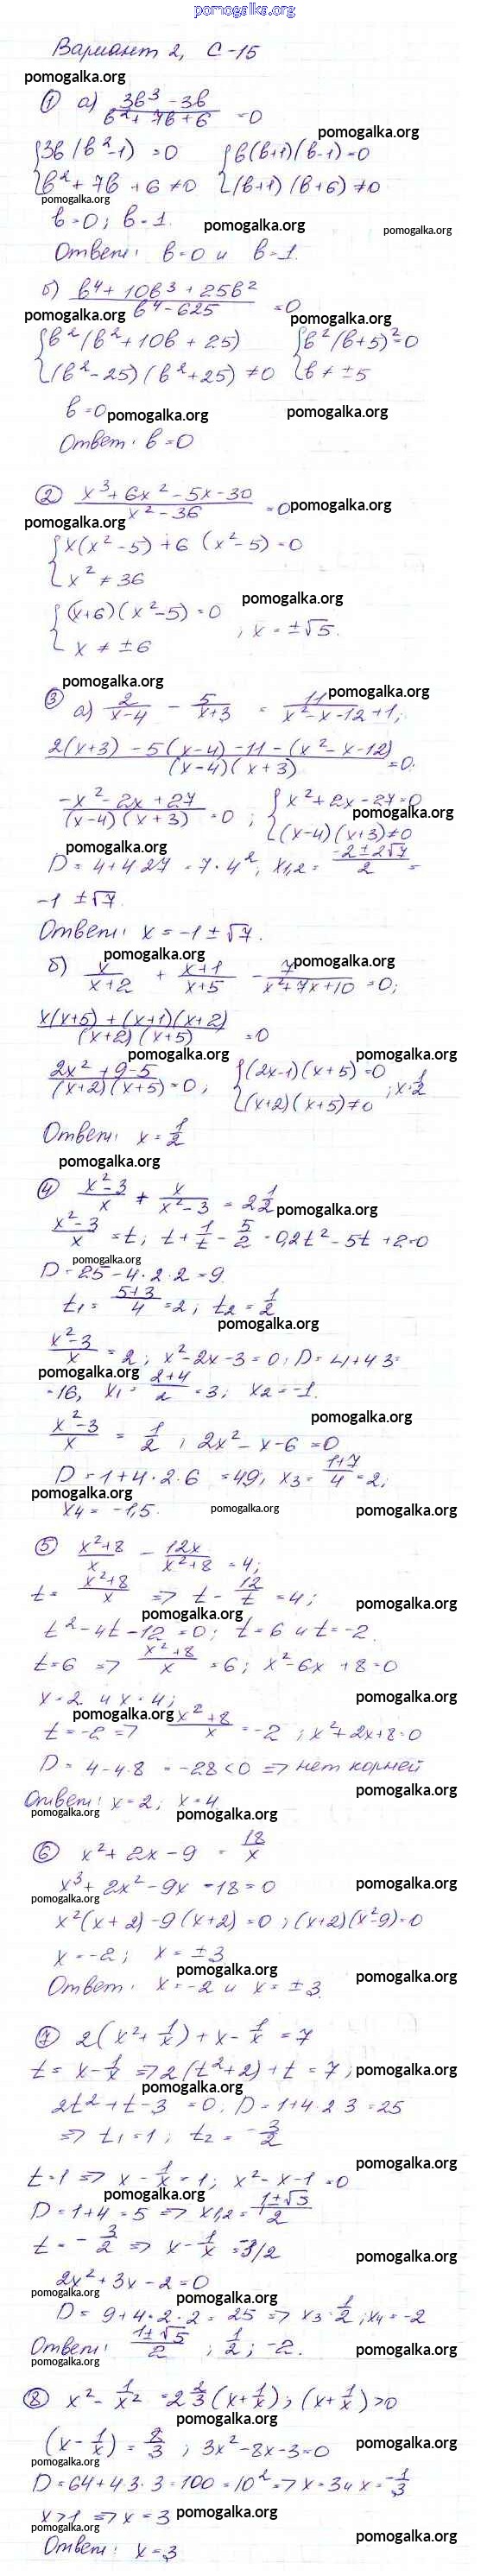 pomogalka.org
Вариант 2, С-15
pomogalka.org
① а) 3b³ - 3b / b² + 7b + 6 = 0
pomogalka.org
{3b(b²-1) = 0 {b(b+1)(b-1) = 0
{b² + 7b + 6 ≠ 0 {(b+1)(b+6) ≠ 0
pomogalka.org
b = 0; b = 1.
pomogalka.org
pomogalka.org
Ответ: b = 0 и b = 1.
б) b⁴ + 10b³ + 25b² / b⁴ - 625 = 0
pomogalka.org
pomogalka.org
{b²(b² + 10b + 25) {b²(b+5)² = 0
{(b² - 25)(b² + 25) ≠ 0 {b ≠ ± 5
b = 0
pomogalka.org
pomogalka.org
Ответ: b = 0
② x³ + 6x² - 5x - 30 / x² - 36 = 0
pomogalka.org
pomogalka.org
{x(x² - 5) + 6(x² - 5) = 0
{x² ≠ 36
pomogalka.org
{(x+6)(x² - 5) = 0
{x ≠ ± 6 ; x = ±√5.
pomogalka.org
③ а) 2 / x-4 - 5 / x+3 = 11 / x² - x - 12 + 1;
pomogalka.org
2(x+3) - 5(x-4) - 11 - (x² - x - 12) / (x-4)(x+3) = 0.
-x² - 2x + 27 / (x-4)(x+3) = 0 ; {x² + 2x - 27 = 0
pomogalka.org
{(x-4)(x+3) ≠ 0
pomogalka.org
D = 4 + 4·27 = 7·4²; x₁,₂ = -2 ± 2√7 / 2 =
-1 ± √7.
Ответ: x = -1 ± √7.
pomogalka.org
б) x / x+2 + x+1 / x+5 - 7 / x² + 7x + 10 = 0;
pomogalka.org
x(x+5) + (x+1)(x+2) / (x+2)(x+5) = 0
pomogalka.org
pomogalka.org
2x² + 9 - 5 / (x+2)(x+5) = 0; {(2x-1)(x+5) = 0
{(x+2)(x+5) ≠ 0 ; x = 1/2
Ответ: x = 1/2
pomogalka.org
④ x² - 3 / x + x / x² - 3 = 2 1/2
pomogalka.org
x² - 3 / x = t; t + 1/t - 5/2 = 0, 2t² - 5t + 2 = 0
pomogalka.org
D = 25 - 4·2·2 = 9.
t₁ = 5+3 / 4 = 2; t₂ = 1/2
pomogalka.org
x² - 3 / x = 2; x² - 2x - 3 = 0; D = 4 + 4·3 =
pomogalka.org
= 16, x₁ = 2+4 / 2 = 3; x₂ = -1.
pomogalka.org
x² - 3 / x = 1/2 ; 2x² - x - 6 = 0
D = 1 + 4·2·6 = 49; x₃ = 1+7 / 4 = 2;
pomogalka.org
x₄ = -1,5.
pomogalka.org
pomogalka.org
⑤ x² + 8 / x - 12x / x² + 8 = 4;
t = x² + 8 / x ⇒ t - 12/t = 4;
pomogalka.org
pomogalka.org
t² - 4t - 12 = 0; t = 6 и t = -2.
t = 6 ⇒ x² + 8 / x = 6; x² - 6x + 8 = 0
x = 2 и x = 4;
pomogalka.org
pomogalka.org
t = -2 ⇒ x² + 8 / x = -2 ; x² + 2x + 8 = 0
D = 4 - 4·8 = -28 < 0 ⇒ нет корней
pomogalka.org
Ответ: x = 2; x = 4
pomogalka.org
pomogalka.org
⑥ x² + 2x - 9 = 18 / x
x³ + 2x² - 9x - 18 = 0
pomogalka.org
pomogalka.org
x²(x+2) - 9(x+2) = 0 ; (x+2)(x² - 9) = 0
x = -2; x = ± 3
pomogalka.org
pomogalka.org
Ответ: x = -2 и x = ± 3.
⑦ 2(x² + 1/x) + x - 1/x = 7
t = x - 1/x ⇒ 2(t² + 2) + t = 7;
pomogalka.org
pomogalka.org
2t² + t - 3 = 0. D = 1 + 4·2·3 = 25
⇒ t₁ = 1; t₂ = -3/2
pomogalka.org
t = 1 ⇒ x - 1/x = 1; x² - x - 1 = 0
pomogalka.org
D = 1 + 4 = 5 ⇒ x₁,₂ = 1 ± √5 / 2
t = -3/2 ⇒ x - 1/x = -3/2
pomogalka.org
2x² + 3x - 2 = 0
pomogalka.org
pomogalka.org
D = 9 + 4·2·2 = 25 ⇒ x₃ = 1/2 ; x₄ = -2
Ответ: 1 ± √5 / 2 ; 1/2 ; -2.
pomogalka.org
pomogalka.org
⑧ x² - 1/x² = 2 2/3 (x + 1/x); (x + 1/x) > 0
pomogalka.org
(x - 1/x) = 8/3 ; 3x² - 8x - 3 = 0
pomogalka.org
pomogalka.org
D = 64 + 4·3·3 = 100 = 10² ⇒ x = 3 и x = -1/3
x > 1 ⇒ x = 3
pomogalka.org
pomogalka.org
Ответ: x = 3
pomogalka.org